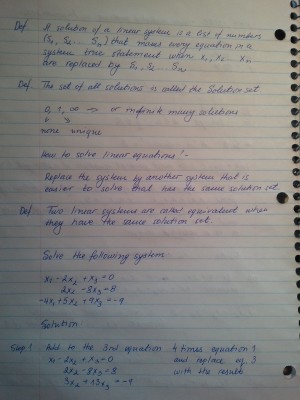 Def. A solution of a linear system is a list of numbers
(S₁, S₂ ... Sₙ) that makes every equation in a
system true statement when x₁, x₂ ... xₙ
are replaced by S₁, S₂ ... Sₙ.
Def. The set of all solutions is called the Solution set
0, 1, ∞ → or infinite many solutions
none unique
How to solve linear equations? -
Replace the system by another system that is
easier to solve that has the same solution set.
Def Two linear systems are called equivalent when
they have the same solution set.
Solve the following system
x₁ - 2x₂ + x₃ = 0
2x₂ - 8x₃ = 8
-4x₁ + 5x₂ + 9x₃ = -9
Solution
Step 1 Add to the 3rd equation 4 times equation 1
x₁ - 2x₂ + x₃ = 0 and replace eq. 3
2x₂ - 8x₃ = 8 with the result
3x₂ + 13x₃ = -9